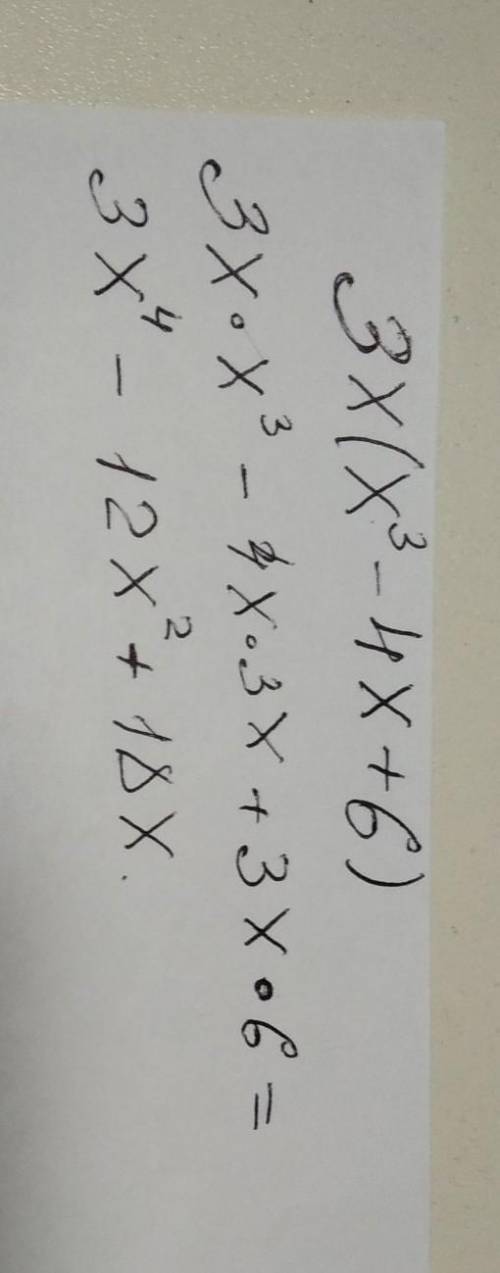 3x(x³-4x+6)
3x•x³-4x•3x+3x•6=
3x⁴-12x²+18x.